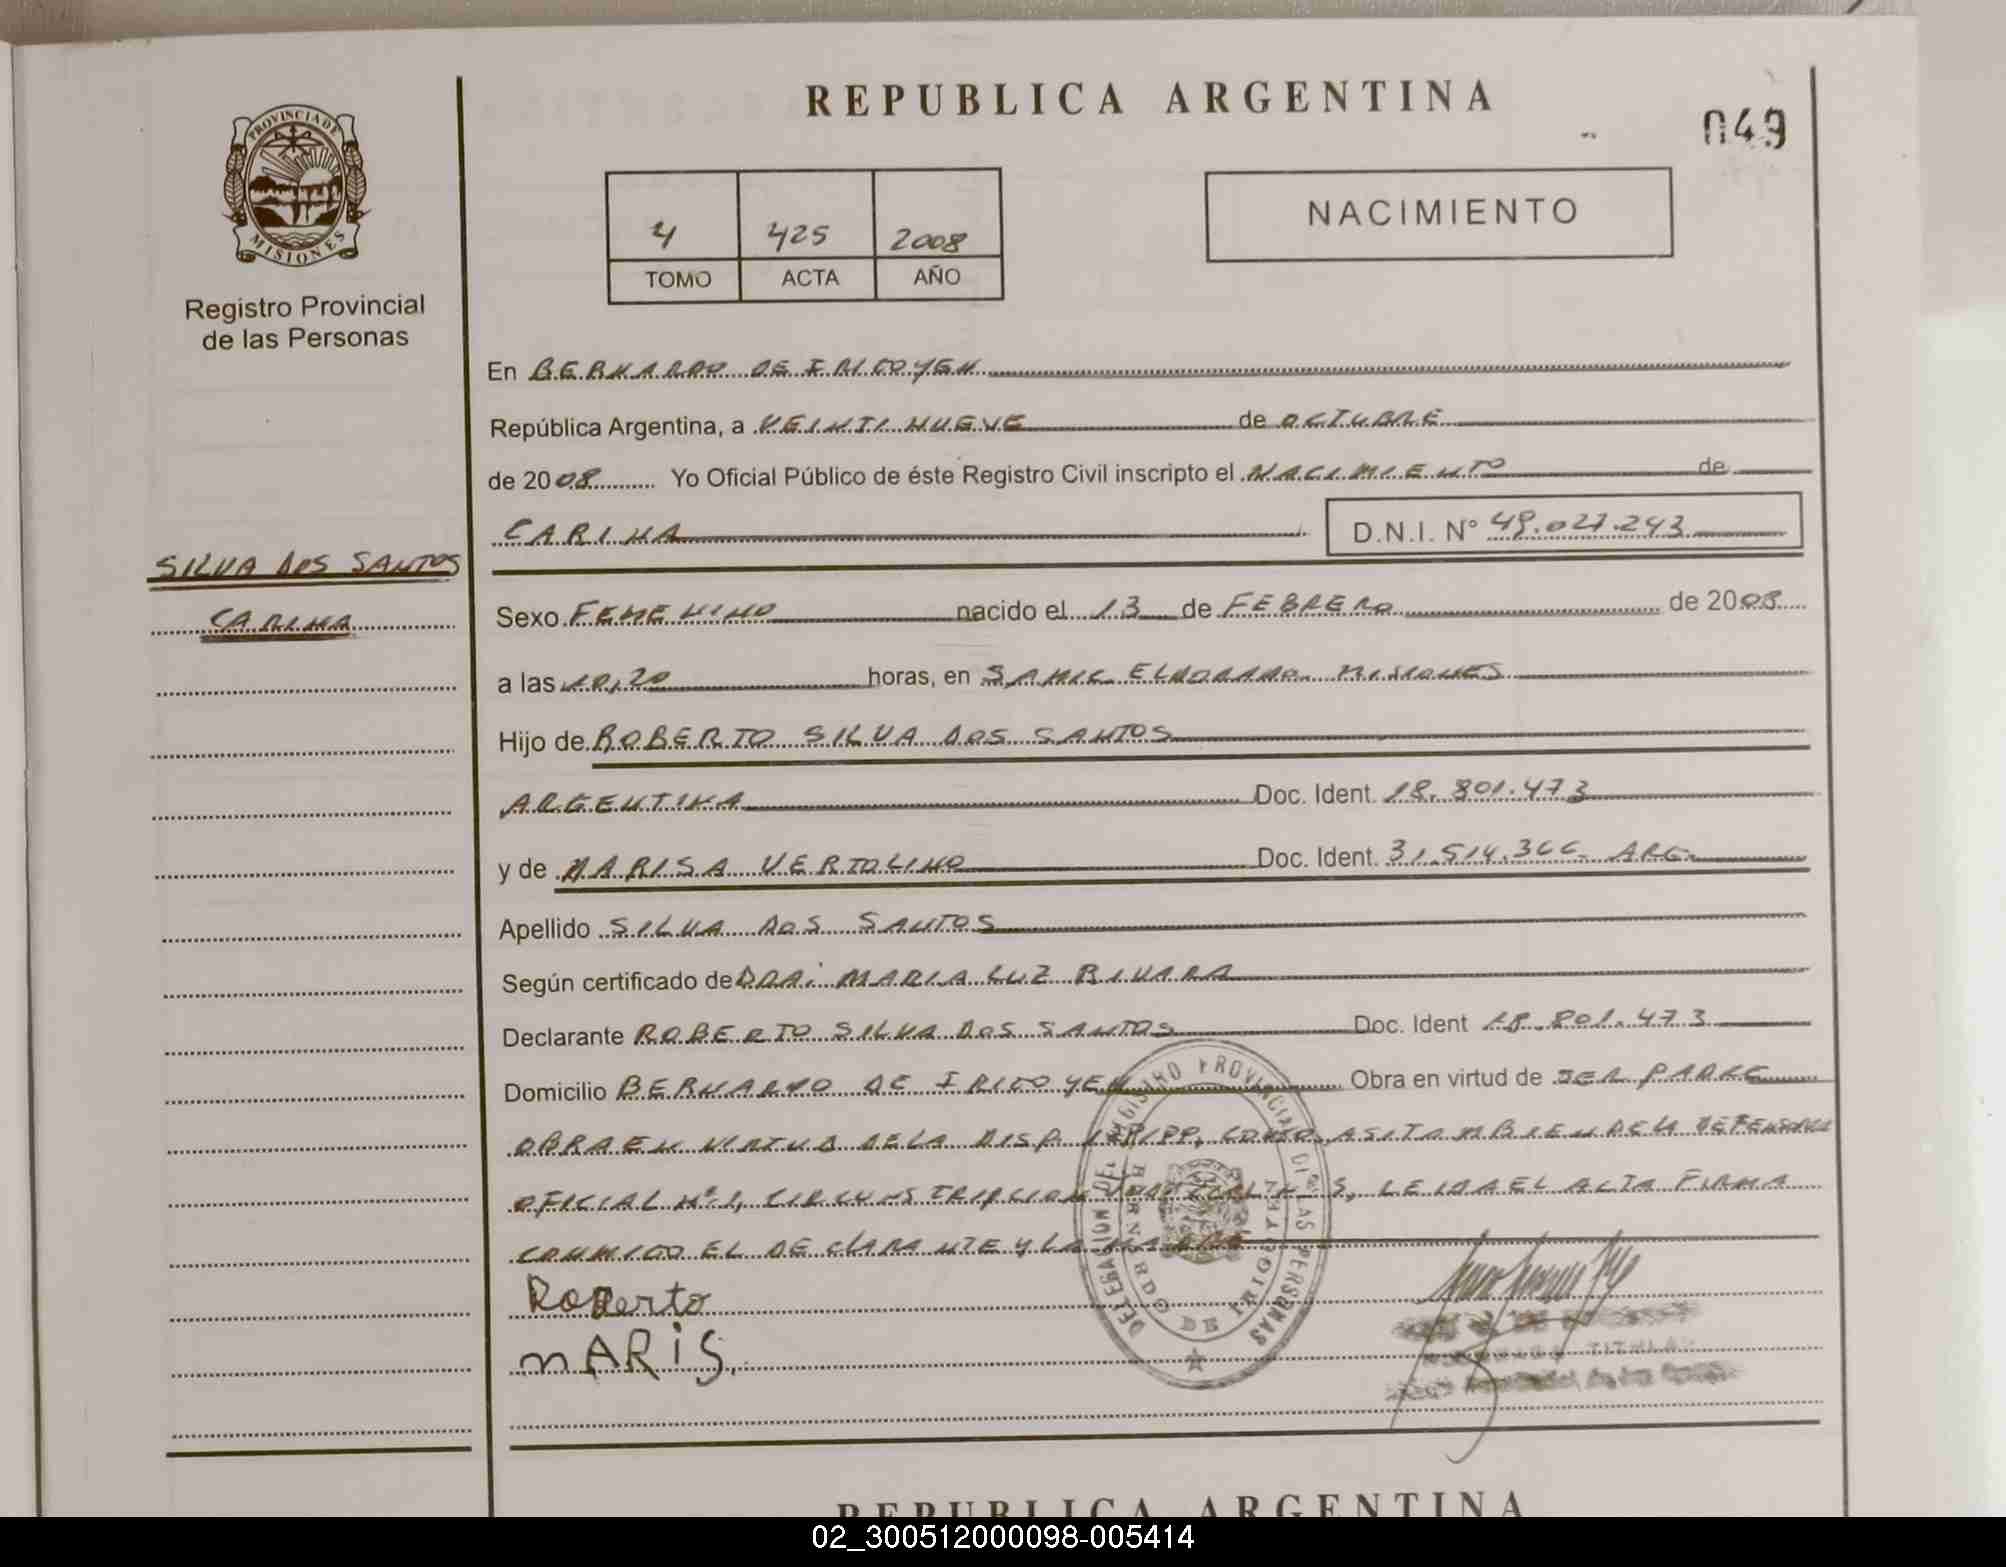 REPUBLICA ARGENTINA
049
PROVINCIA DE
MISIONES
Registro Provincial
de las Personas
4 425 2008
TOMO ACTA AÑO
NACIMIENTO
En BERNARDO DE IRIGOYEN
República Argentina, a VEINTINUEVE de OCTUBRE
de 2008 Yo Oficial Público de éste Registro Civil inscripto el NACIMIENTO de
CARINA D.N.I. N° 49.027.243
SILVA DOS SANTOS
CARINA
Sexo FEMENINO nacido el 13 de FEBRERO de 2008
a las 10,20 horas, en SAMIC ELDORADO MISIONES
Hijo de ROBERTO SILVA DOS SANTOS
ARGENTINA Doc. Ident. 18.801.473
y de MARISA VERTOLINO Doc. Ident. 31.514.366 ARG.
Apellido SILVA DOS SANTOS
Según certificado de DRA: MARIA LUZ RIVARA
Declarante ROBERTO SILVA DOS SANTOS Doc. Ident 18.801.473
Domicilio BERNARDO DE IRIGOYEN Obra en virtud de SER PADRE
OBRA EN VIRTUD DE LA DISP. COMO ASI TAMBIEN DE LA DEFENSORIA
OFICIAL Nº1, CIRCUNSTRIPCION LEIDA EL ACTA FIRMA
CONMIGO EL DECLARANTE Y LA MADRE
Roberto
mARiS
DELEGACION DEL REGISTRO PROVINCIAL DE LAS PERSONAS
BERNARDO DE IRIGOYEN
TITULAR
REPUBLICA ARGENTINA
02_300512000098-005414